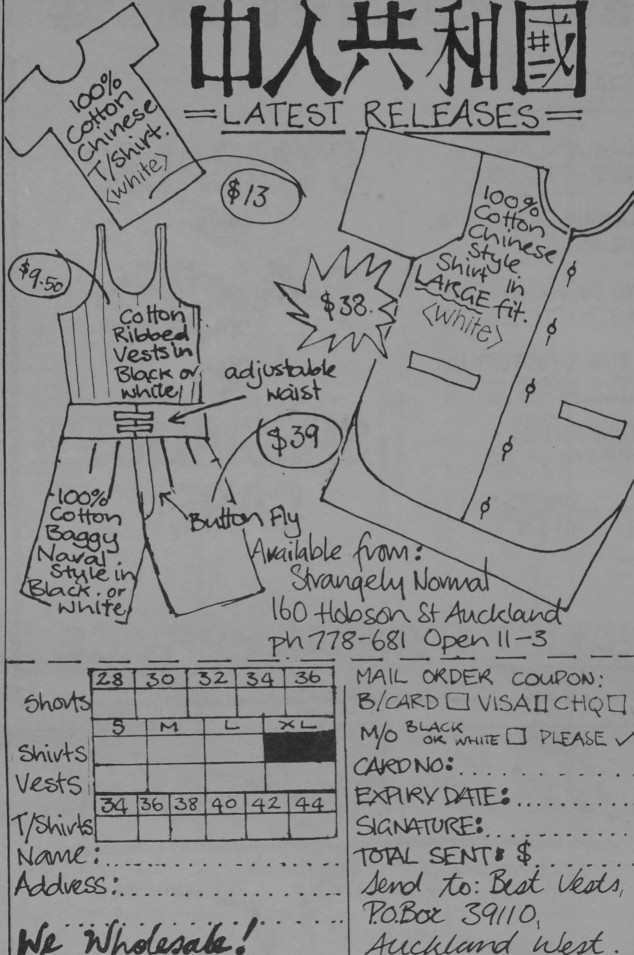 中人共和國
=LATEST RELEASES=
100%
Cotton
Chinese
T/Shirt.
<white>
$13
100%
Cotton
Chinese
Style
Shirt in
LARGE fit.
<white>
$38.
$9.50
Cotton
Ribbed
Vests in
Black or
white
adjustable
waist
$39
Button Fly
100%
Cotton
Baggy
Naval.
Style in
Black. or
White
Available from:
Strangely Normal
160 Hobson St Auckland
ph 778-681 Open 11-3
28 30 32 34 36
Shorts
S M L XL
Shirts
Vests
34 36 38 40 42 44
T/Shirts
Name:
Address:
We Wholesale!
MAIL ORDER COUPON:
B/CARD □ VISA □ CHQ □
M/O BLACK OR WHITE □ PLEASE ✓
CARD NO:
EXPIRY DATE:
SIGNATURE:
TOTAL SENT: $
Send to: Best Vests,
P.O.Box 39110,
Auckland West.